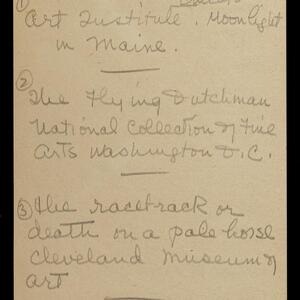 Art Institute. Moonlight
in Maine.
②
The Flying Dutchman
National Collection of Fine
Arts Washington D.C.
③ The racetrack or
death on a pale horse
Cleveland Museum of
Art